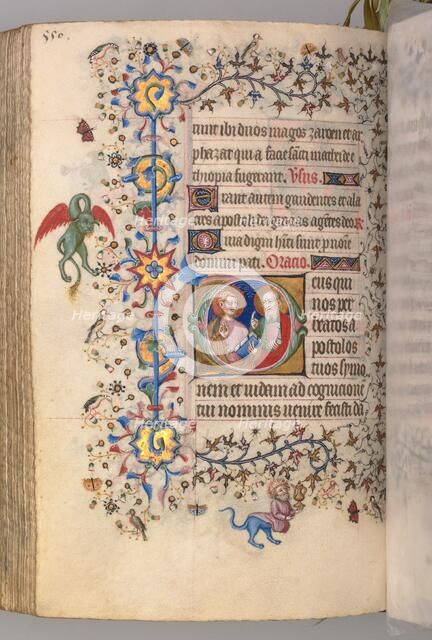 550.
nunt ibi duos magos zaroen et ar
phazat qui a facie sancti mathei de
thiopia fugerant. Usus.
Erant autem gaudentes et ala
cres apostoli dei gratias agentes deo. R
Quia digni hiti sunt p noie
domini pati. Oracio.
Deus qui
nos per
beatos a
postolos
tuos symo
nem et iudam ad cognicione
tui nominis venire
Heritage Images